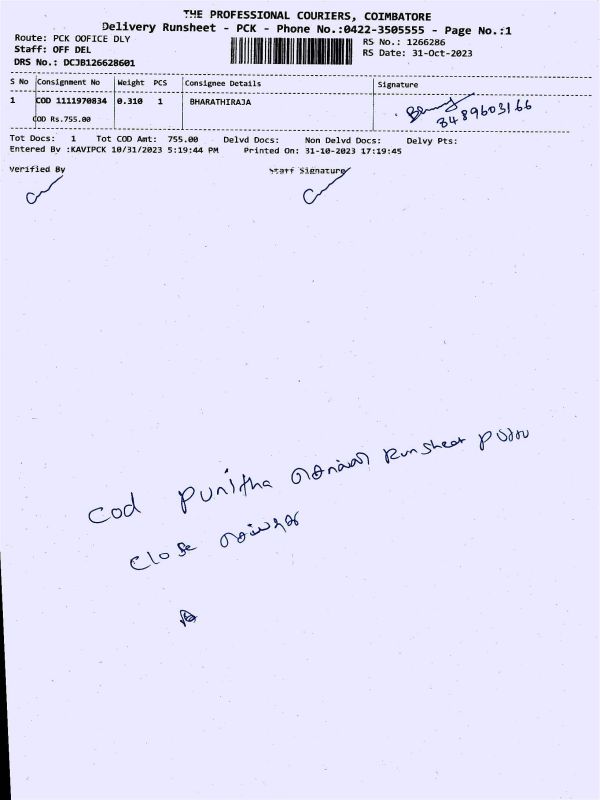 THE PROFESSIONAL COURIERS, COIMBATORE
Delivery Runsheet - PCK - Phone No.:0422-3505555 - Page No.:1
Route: PCK OOFICE DLY
RS No.: 1266286
Staff: OFF DEL
RS Date: 31-Oct-2023
DRS No.: DCJB126628601
S No Consignment No Weight PCS Consignee Details Signature
1 COD 1111970834 0.310 1 BHARATHIRAJA
8489603166
COD Rs.755.00
Tot Docs: 1 Tot COD Amt: 755.00 Delvd Docs: Non Delvd Docs: Delvy Pts:
Entered By :KAVIPCK 10/31/2023 5:19:44 PM Printed On: 31-10-2023 17:19:45
Verified By Staff Signature
Cod Punitha Runsheet
Close